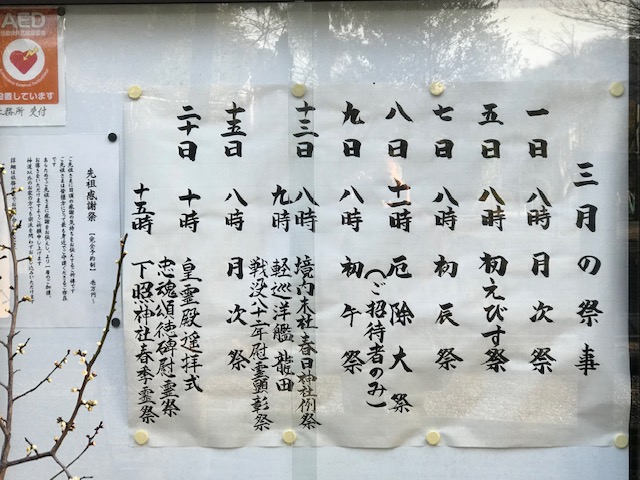 三月の祭事
一日 八時 月次祭
五日 八時 初えびす祭
七日 八時 初辰祭
八日 十一時 厄除大祭
(ご招待者のみ)
九日 八時 初午祭
十三日 八時 境内末社春日神社例祭
九時 軽巡洋艦 龍田
戦没八十一年慰霊顕彰祭
十五日 八時 月次祭
二十日 十時 皇霊殿遥拝式
忠魂頌徳碑慰霊祭
十五時 下照神社春季霊祭
AED
設置しています
社務所 受付
先祖感謝祭 【完全予約制】 壱万円~